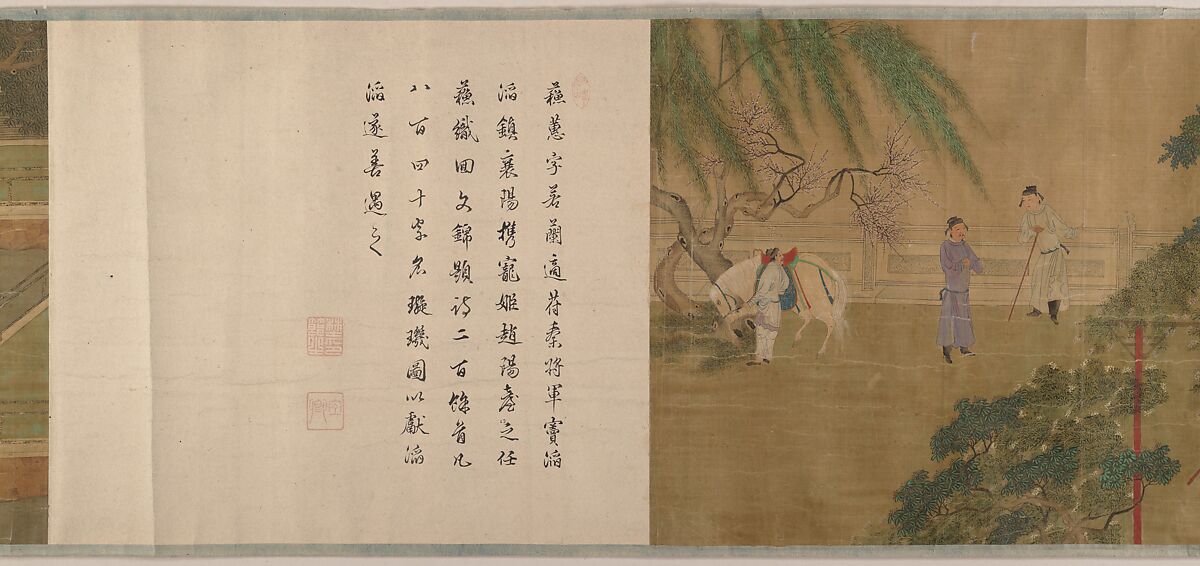 蘇蕙字若蘭適苻秦將軍竇滔
滔鎮襄陽携寵姬趙陽臺之任
蘇織回文錦題詩二百餘首凡
八百四十字名璇璣圖以獻滔
滔遂善遇之